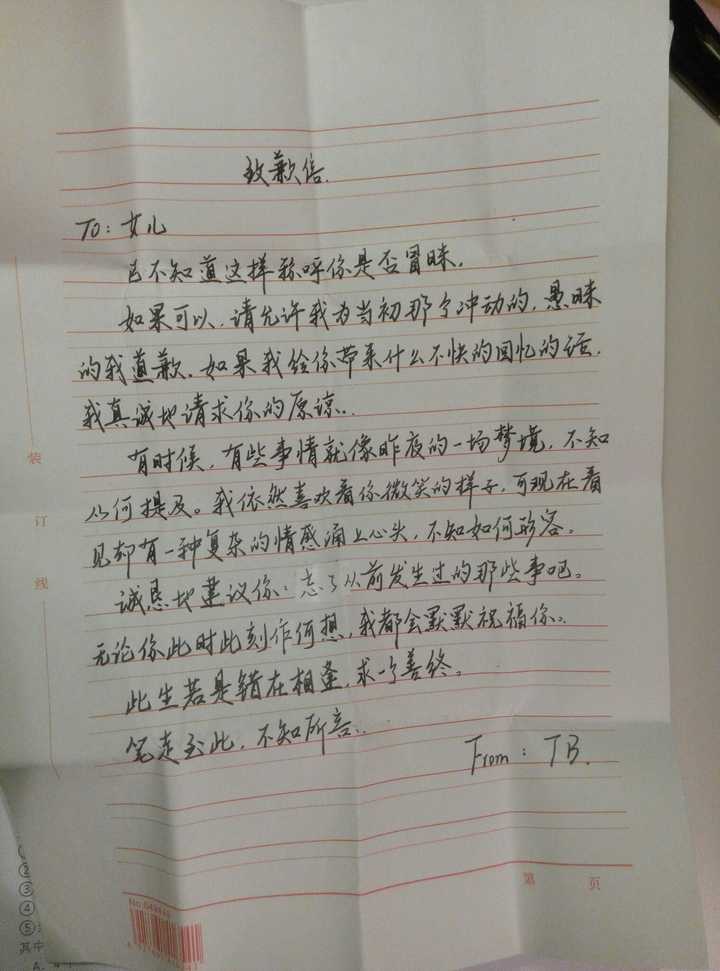 致歉信.
To: 女儿
已不知道这样称呼你是否冒昧.
如果可以, 请允许我为当初那个冲动的, 愚昧
的我道歉. 如果我给你带来什么不快的回忆的话,
我真诚地请求你的原谅..
有时候, 有些事情就像昨夜的一场梦境, 不知
从何提及。我依然喜欢看你微笑的样子, 可现在看
见却有一种复杂的情感涌上心头, 不知如何形容。
诚恳地建议你: 忘了从前发生过的那些事吧。
无论你此时此刻作何想, 我都会默默祝福你..
此生若是错在相逢, 求一个善终。
笔走至此, 不知所言..
From: TB.
装
订
线
第 页
②
③
④
⑤
其中